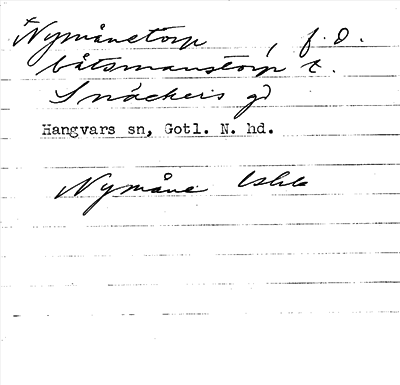 *Nymånetorp, f. d.
båtsmanstorp t.
Snäckers gd
Hangvars sn, Gotl. N. hd.
Nymåne